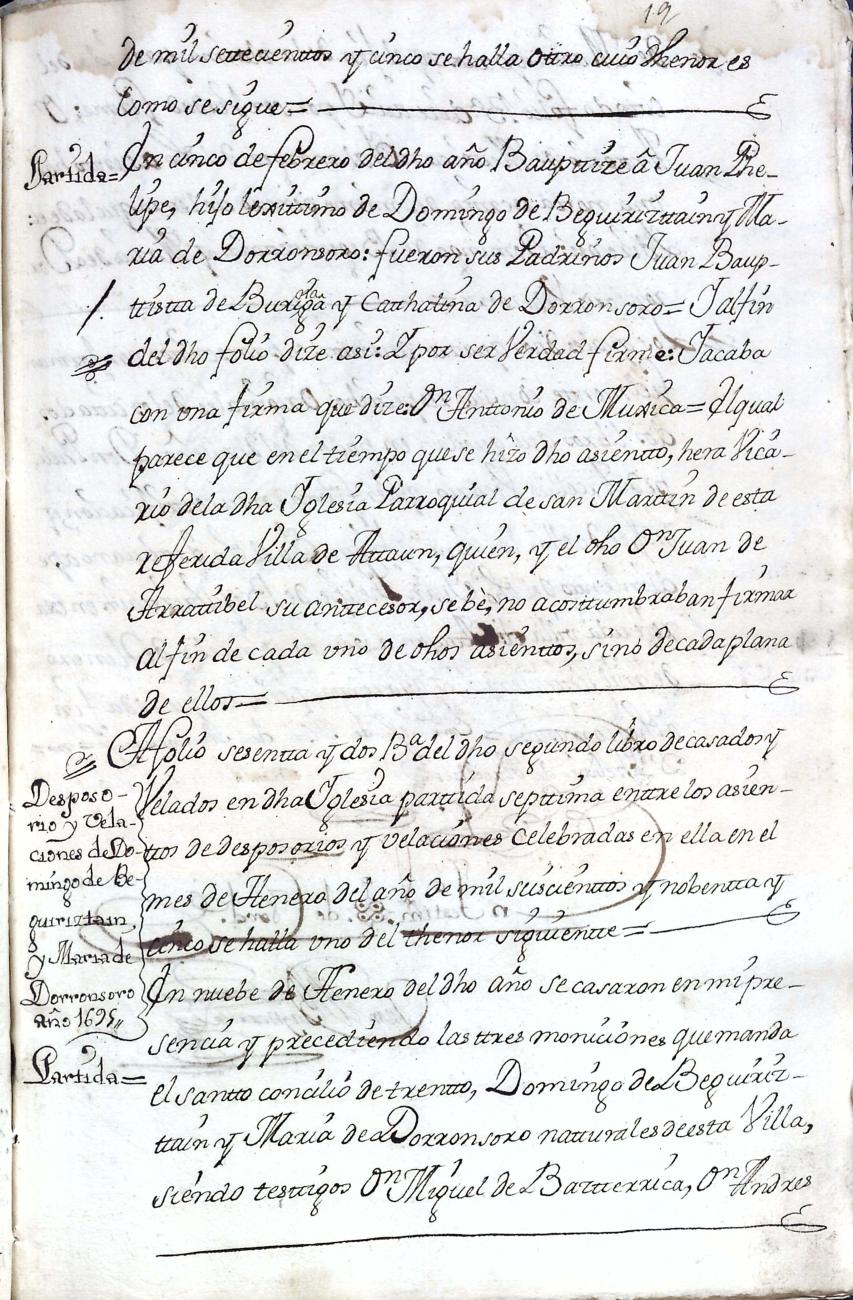 19
de mil settecienttos y cinco se halla ottro cuio thenor es
como se sigue=
Partida=
En cinco de febrero del dho año Bauptize â Juan Phe-
lipe, hijo lexittimo de Domingo de Beguirizttain y Ma-
ria de Dorronsoro: fueron sus Padrinos Juan Baup-
ttistta de Burgoa y Catthalina de Dorronsoro= I al fin
del dho folio dize asi: Y por ser Verdad firme: I acaba
con vna firma que dize: Dn Anttonio de Muxica= El qual
parece que en el tiempo que se hizo dho asientto, hera Vica-
rio de la dha Iglesia Parroquial de san Marttin de esta
referida Villa de Attaun, quien, y el dho Dn Juan de
Arrattibel su anttecesor, se bè, no acosttumbraban firmar
al fin de cada vno de dhos asienttos, sino de cada plana
de ellos=
Desposo-
rio y Vela-
ciones de Do-
mingo de Be-
guiriztain,
y Maria de
Dorronsoro
año 1695,,
A folio sesentta y dos Ba del dho segundo libro de casados y
Velados en dha Iglesia parttida septtima enttre los asien-
ttos de desposorios y velaciones celebradas en ella en el
mes de Henero del año de mil suscienttos y nobentta y
cinco se halla vno del thenor siguientte=
Partida=
En nuebe de Henero del dho año se casaron en mi pre-
sencia y precediendo las ttres moniciones que manda
el santto concilio de trentto, Domingo de Beguiriz-
ttain y Maria de Dorronsoro natturales de esta Villa,
siendo testtigos Dn Miguel de Bartterrica, Dn Andres